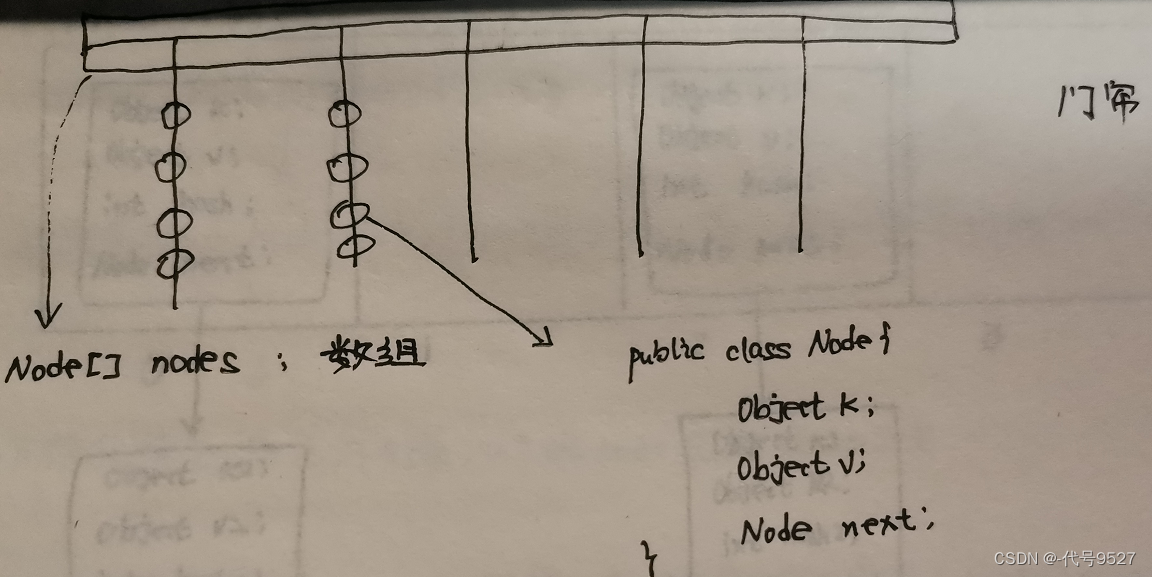 门帘
Node[] nodes ; 数组
public class Node{
Object k;
Object v;
Node next;
}
CSDN @-代号9527